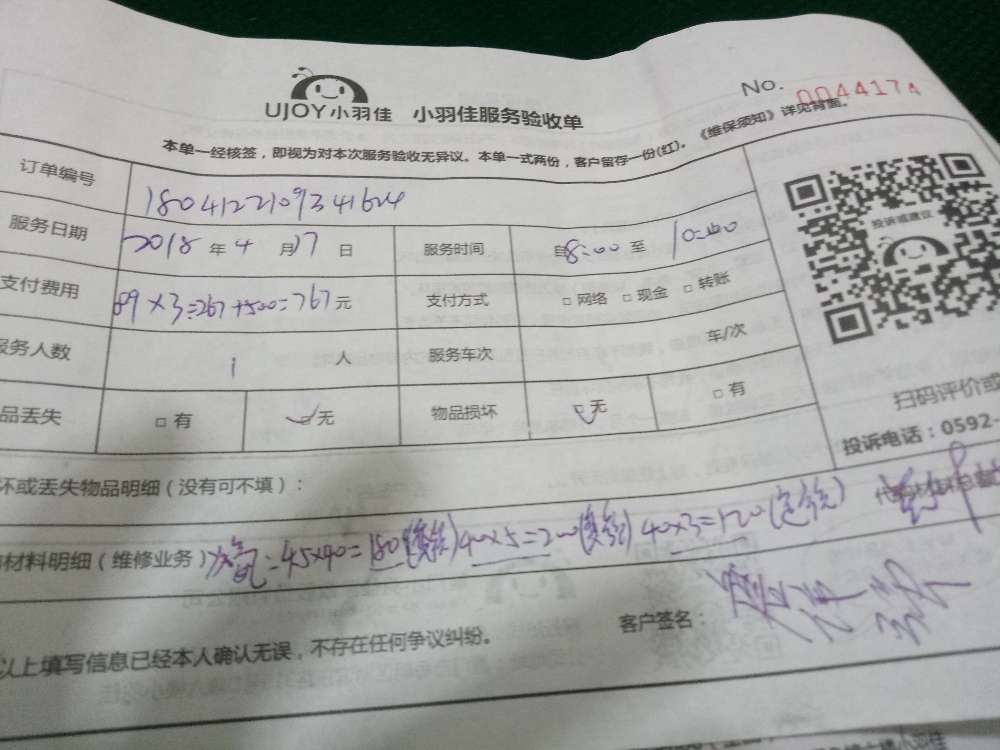 UJOY小羽佳 小羽佳服务验收单
No. 004417
本单一经核签，即视为对本次服务验收无异议。本单一式两份，客户留存一份(红)。《维保须知》详见背面。
订单编号 18041221093 41624
服务日期 2018 年 4 月 17 日 服务时间 自 8:00 至 10:00
支付费用 89×3=267+500=767 元 支付方式 □ 网络 □ 现金 □ 转账
服务人数 1 人 服务车次 车/次
品丢失 □ 有 无 物品损坏 □ 无 □ 有
投诉或建议
扫码评价或
投诉电话：0592-
坏或丢失物品明细（没有可不填）：
材料明细（维修业务） 45×40=180 40×5=200 40×3=120
客户签名：
以上填写信息已经本人确认无误，不存在任何争议纠纷。